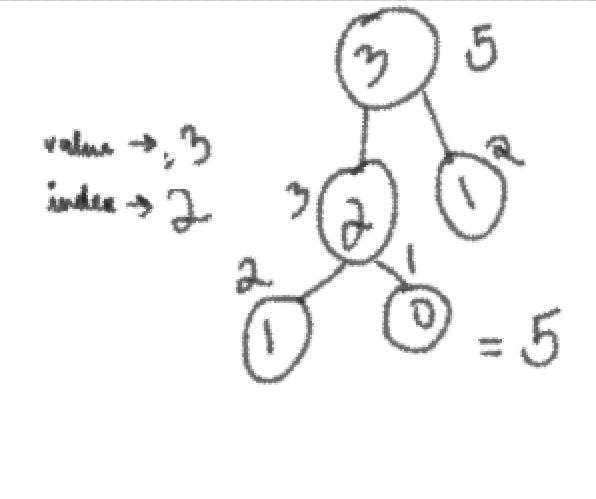 3 5
value → : 3
2
index → 2
3 2 1
2 1
1 0
= 5